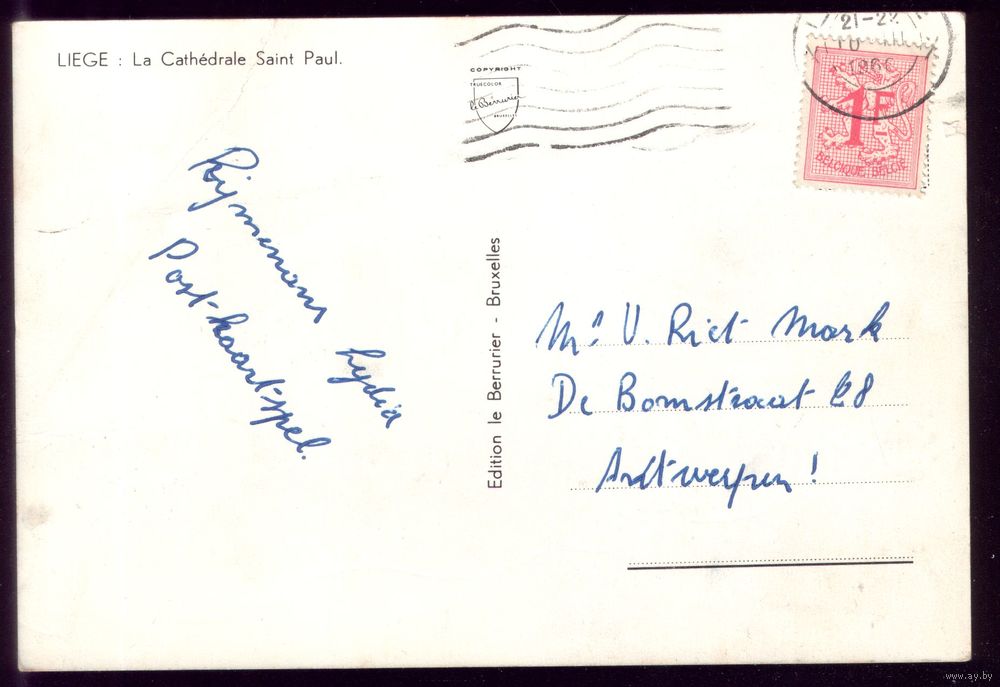 LIEGE : La Cathédrale Saint Paul.
COPYRIGHT
TRUECOLOR
le Berrurier
BRUXELLES
21-22
10
1966
1F
BELGIQUE-BELGIË
Rijmenans Lydia
Post-kaart-spel.
Edition le Berrurier - Bruxelles
Mr V. Riet Mark
De Bomstraat 28
Antwerpen!
www.ay.by